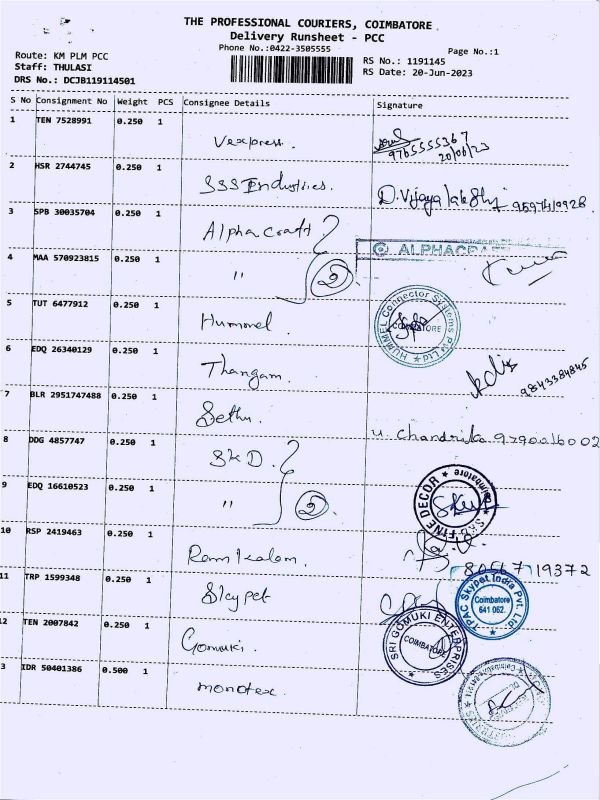 THE PROFESSIONAL COURIERS, COIMBATORE
Delivery Runsheet - PCC
Phone No.:0422-3505555
Page No.:1
Route: KM PLM PCC
Staff: THULASI
DRS No.: DCJB119114501
RS No.: 1191145
RS Date: 20-Jun-2023
S No Consignment No Weight PCS Consignee Details Signature
1 TEN 7528991 0.250 1 Vexpress. 9765555367
20/06/23
2 HSR 2744745 0.250 1 SSS Industries. D. Vijaya lakshmi
3 SPB 30035704 0.250 1 Alpha craft
ALPHACRAFT
4 MAA 570923815 0.250 1 " 2
5 TUT 6477912 0.250 1 Hummel HUMMEL Connector Systems Pvt Ltd COIMBATORE
6 EDQ 26340129 0.250 1 Thangam. 9843384845
7 BLR 2951747488 0.250 1 Sethu. U. Chandrika 9790016002
8 DDG 4857747 0.250 1 SKD.
9 EDQ 16610523 0.250 1 " 2 SKD FINE DECOR Coimbatore
10 RSP 2419463 0.250 1 Ramkalam. 8056719372
11 TRP 1599348 0.250 1 Skypet YPAC Skypet India Pvt. Ltd. Coimbatore 641 062.
12 TEN 2007842 0.250 1 Gomuki. SRI GOMUKI ENTERPRISES COIMBATORE
3 IDR 50401386 0.500 1 monotex.